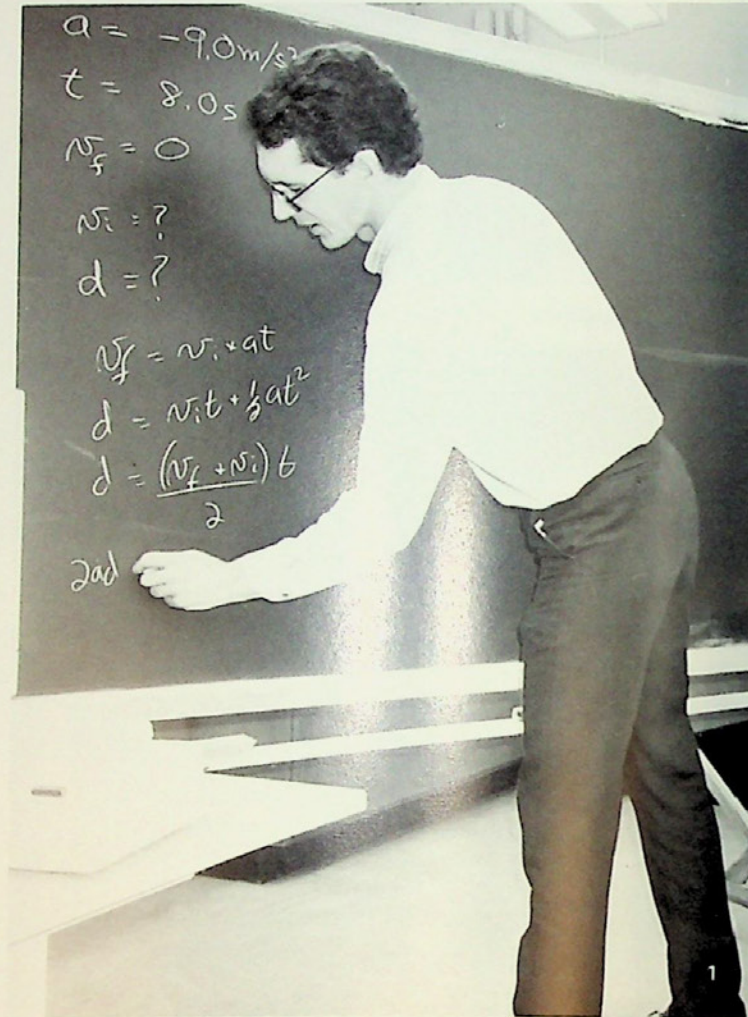 a = -9.0m/s²
t = 8.0s
v_f = 0
v_i = ?
d = ?
v_f = v_i + at
d = v_i t + ½at²
d = (v_f + v_i)t
2
2ad
1